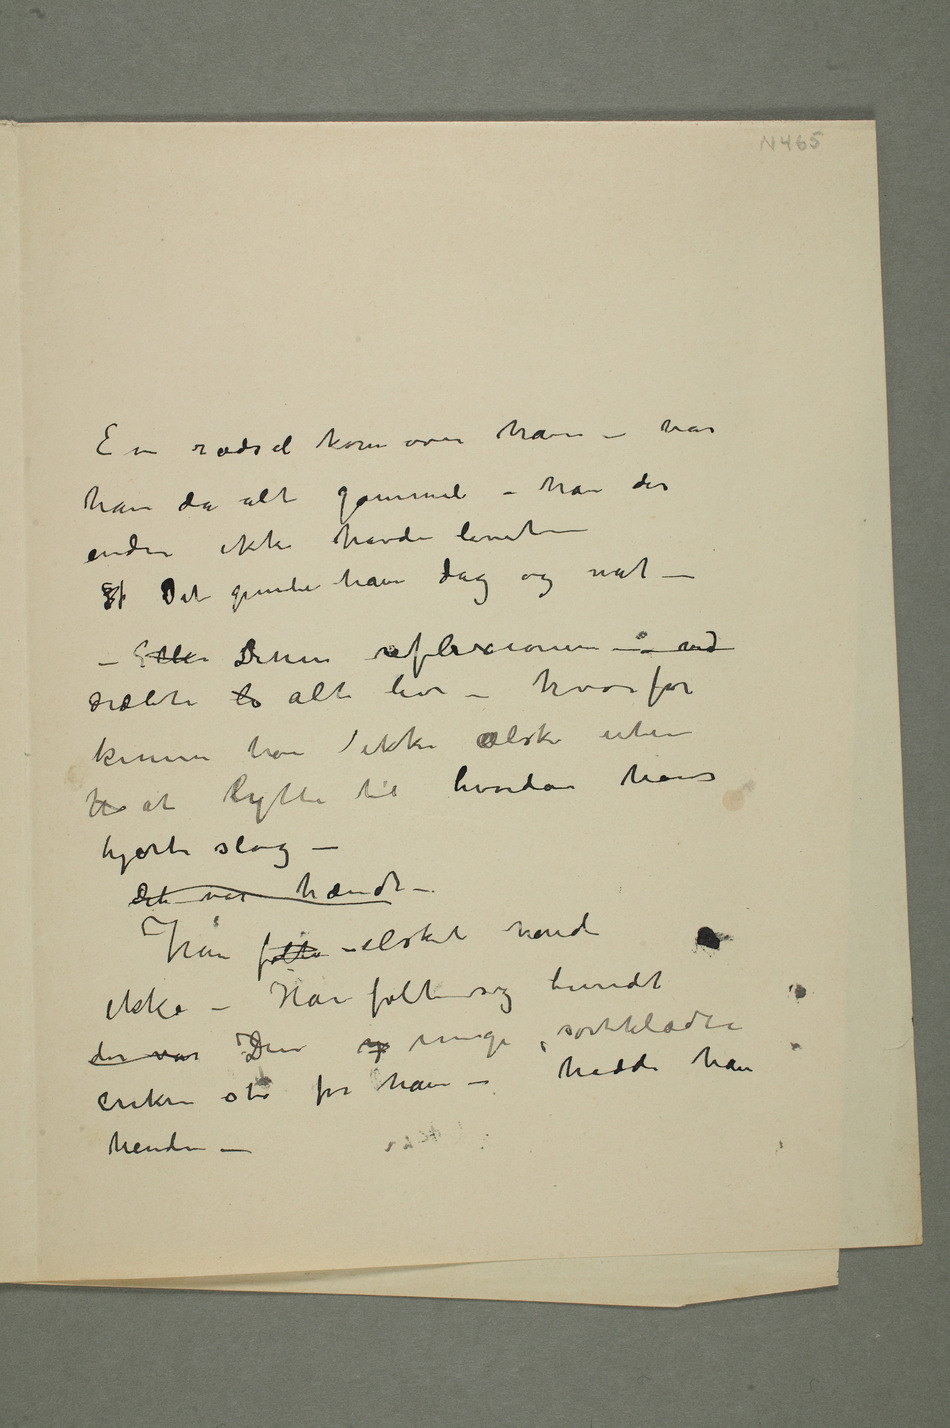 N465
En rædsel kom over ham – var
han da alt gammel – han der
endnu ikke havde levet –
Det pinte ham dag og nat –
– Eller Denne reflexionen – ved
dræbte alt liv – hvorfor
kunne han ikke elske uten
h at lytte til hvordan hans
hjerte slog –
Det var hændt –
Han følte elsket hende
ikke – Han følte sig bundet
der var Den y unge, sortklædte
enken stod for ham – hadde han
hende –